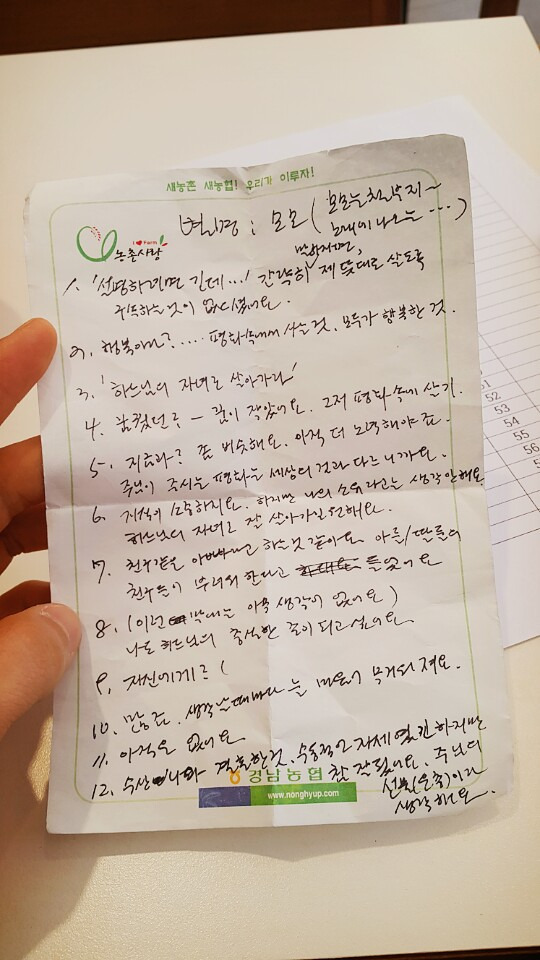 새농촌 새농협! 우리가 이루자!
I ♥ Farm
농촌사랑
별명 : 모모 ( 모모는 철부지~
노래에 나오는 ... )
말하자면,
1. '설명하려면 긴데...' 간략히 제 뜻대로 살도록
구속하는 것이 없으셨어요.
2. 행복이란? ..... 평화속에서 사는 것. 모두가 행복한 것.
3. '하느님의 자녀로 살아가라'
4. 꿈이 작았어요. 그저 평화 속에 살기.
5. 지금과? 좀 비슷해요. 아직 더 노력해야 죠.
주님이 주시는 평화는 세상의 것과 다르니까요.
6. 자식이 소중하지요. 하지만 나의 소유라고는 생각 안해요
하느님의 자녀로 잘 살아가길 원해요.
7. 친구같은 아빠라고 하는것 같아요 아들/딸들의
친구들이 부러워 한다고 들었어요
8. (이런 아무 생각이 없어요)
나도 하느님의 충실한 되고 싶어요.
9. 자신에게? (
10. 많죠. 생각날때마다 늘 마음이 무거워 져요.
11. 아직은 없어요
12. 수산나와 결혼한것. 수동적인 자세였긴 하지만
참 잘 했어요. 주님의
선물(은총)이라
생각해요.
경남농협
www.nonghyup.com
51
52
53
54
55
56